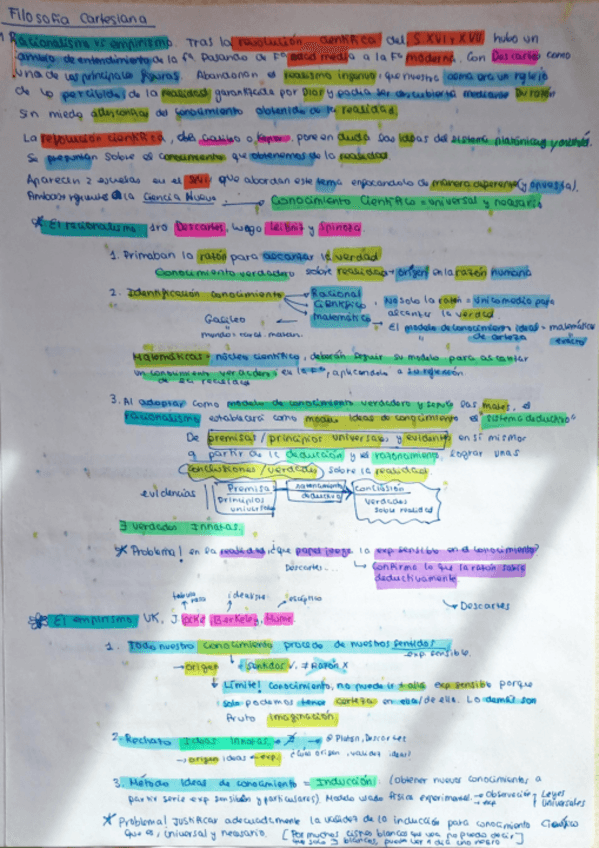 Filosofía Cartesiana
Racionalismo vs empirismo. Tras la revolución científica del S.XVI y XVII hubo un
de entendimiento de la Fª. Pasando de Fª edad media a la Fª moderna. Con Descartes como
una de las principales figuras. Abandonan el realismo ingenuo: que nuestro era un reflejo
de lo percibido, de la realidad garantizada por Dios y podía ser descubierta mediante la razón
Sin miedo a desconfiar del conocimiento obtenido de la realidad.
La revolución científica, de Galileo o Kepler, pone en duda las ideas del sistema platónico y
Se preguntan sobre el conocimiento que obtenemos de la realidad.
Aparecen 2 escuelas en el que abordan este tema enfocándolo de manera diferente (y opuesta).
Ambos siguientes de la Ciencia Nueva → Conocimiento Científico = universal y necesario
* El racionalismo: 1ro Descartes, luego Leibniz y Spinoza
1. Primaban la razón para alcanzar la verdad
Conocimiento verdadero sobre realidad + origen en la razón humana
2. Identificación conocimiento → Racional
→ Científico
→ matemático
. No solo la razón = único medio para
alcanzar la verdad.
Galileo
"
mundo = matem.
El modelo de conocimiento ideal = matemáticas
de certeza exacto
Matemáticas = núcleo científico, deberán seguir su modelo para alcanzar
un conocimiento verdadero en la Fª, aplicándolo a
de la realidad
3. Al adoptar como modelo de conocimiento verdadero y seguro las mates, el
racionalismo establecerá como modelo ideal de conocimiento el "sistema deductivo"
De premisas / principios universales y evidentes en sí mismos
a partir de la deducción y el razonamiento, lograr unas
conclusiones / verdades sobre la realidad.
evidencias
Premisa
Principios
universales
razonamiento
deductivo
Conclusión
verdades
sobre realidad
∃ verdades Innatas.
* Problema! en la realidad ¿que papel juega la exp sensible en el conocimiento?
Descartes... → Confirma lo que la razón sabe
deductivamente
→ Descartes
tabula
rasa
idealista
escéptico
* El empirismo, UK, J Locke, Berkeley, Hume.
1. Todo nuestro conocimiento procede de nuestros sentidos
exp. sensible.
→ origen → sentidos √, ≠ Razón X
Límite! conocimiento, no puede ir + allá exp sensible porque
solo podemos tener certeza en ella/de ella. Lo demás son
fruto imaginación
2. Rechazo Ideas Innatas. Platón, Descartes
→ origen ideas → exp. ¿Cuál origen, validez ideas?
3. Método Ideas de conocimiento = Inducción. (obtener nuevos conocimientos a
partir serie exp sensibles y particulares). Modelo usado física experimental. → Observación y Leyes
→ exp Universales
* Problema! Justificar adecuadamente la validez de la inducción para conocimiento Científico
que es, universal y necesario. [Por muchos cisnes blancos que vea no puedo decir
que solo ∃ blancos, puede ver 1 día uno negro]